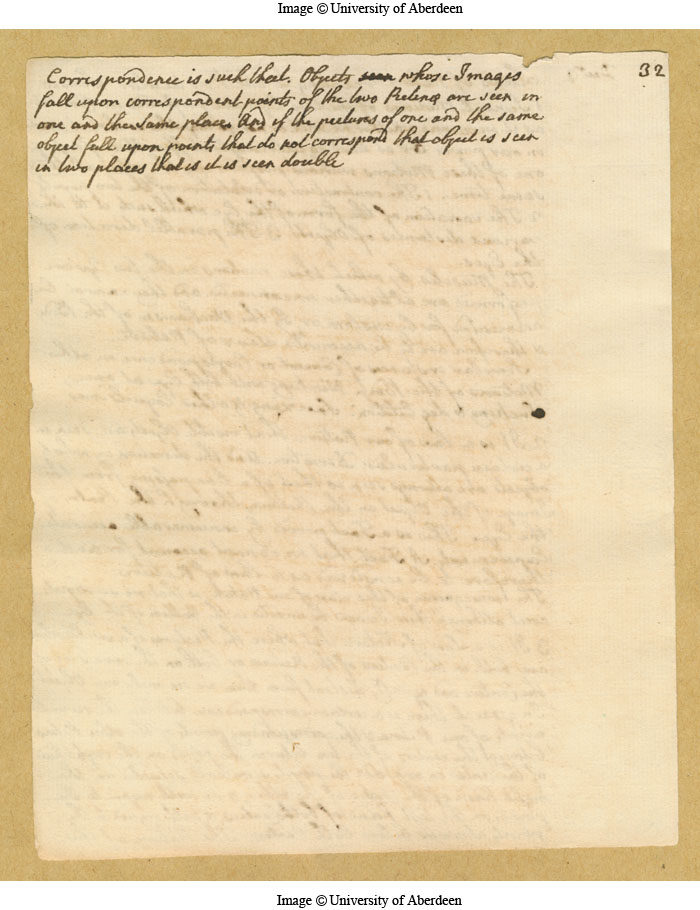 Image © University of Aberdeen
32
Correspondence is such that. Objects seen whose Images
fall upon correspondent points of the two Retinæ are seen in
one and the same place And if the pictures of one and the same
object fall upon points that do not correspond that object is seen
in two places that is it is seen double
Image © University of Aberdeen